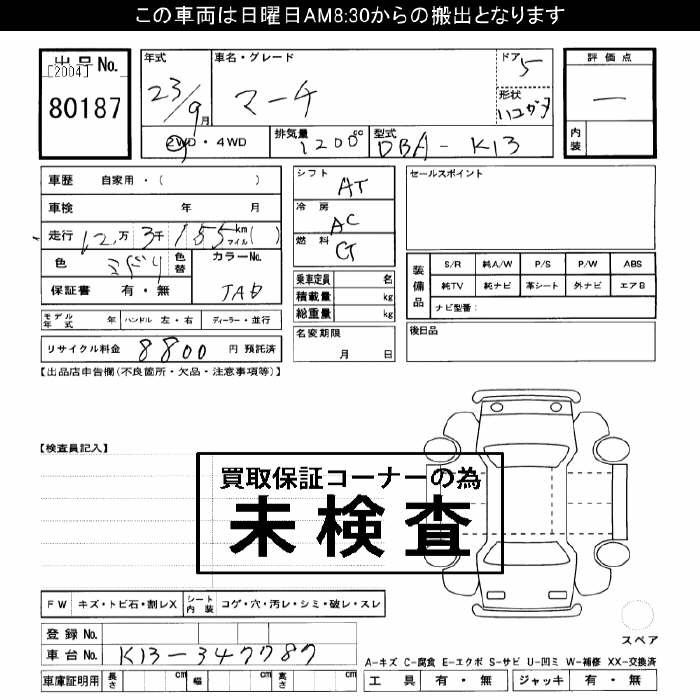 この車両は日曜日AM8:30からの搬出となります
出品No.
[2004]
80187
年式 23/9月
車名・グレード マーチ
ドア 5
形状 ハコガタ
2WD・4WD
排気量 1200cc
型式 DBA-K13
評価点
内装
車歴 自家用・( )
車検 年 月
走行 12万3千155km マイル( )
色 ミドリ 色替
カラーNo.
JAB
保証書 有・無
モデル年式 年 ハンドル 左・右 ディーラー・並行
リサイクル料金 8800 円 預託済
シフト AT
冷房 AC
燃料 G
乗車定員 名
積載量 kg
総重量 kg
名変期限
月 日
セールスポイント
装備品
S/R 純A/W P/S P/W ABS
純TV 純ナビ 革シート 外ナビ エアB
ナビ型番:
後日品
【出品店申告欄(不良箇所・欠品・注意事項等)】
【検査員記入】
買取保証コーナーの為
未検査
FW キズ・トビ石・割レX シート内装 コゲ・穴・汚レ・シミ・破レ・スレ
スペア
登録No.
車台No. K13-347787
A-キズ C-腐食 E-エクボ S-サビ U-凹ミ W-補修 XX-交換済
車庫証明用 長さ cm 幅 cm 高さ cm
工具 有・無 ジャッキ 有・無